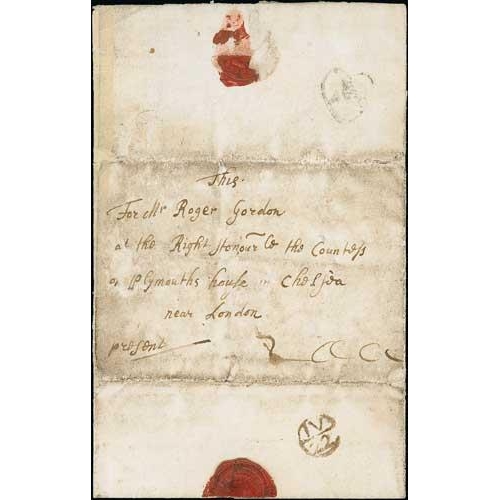 This.
For Mr Roger Gordon
at the Right Honourble the Countess
of Plymouths house in Chelsea
near London
present